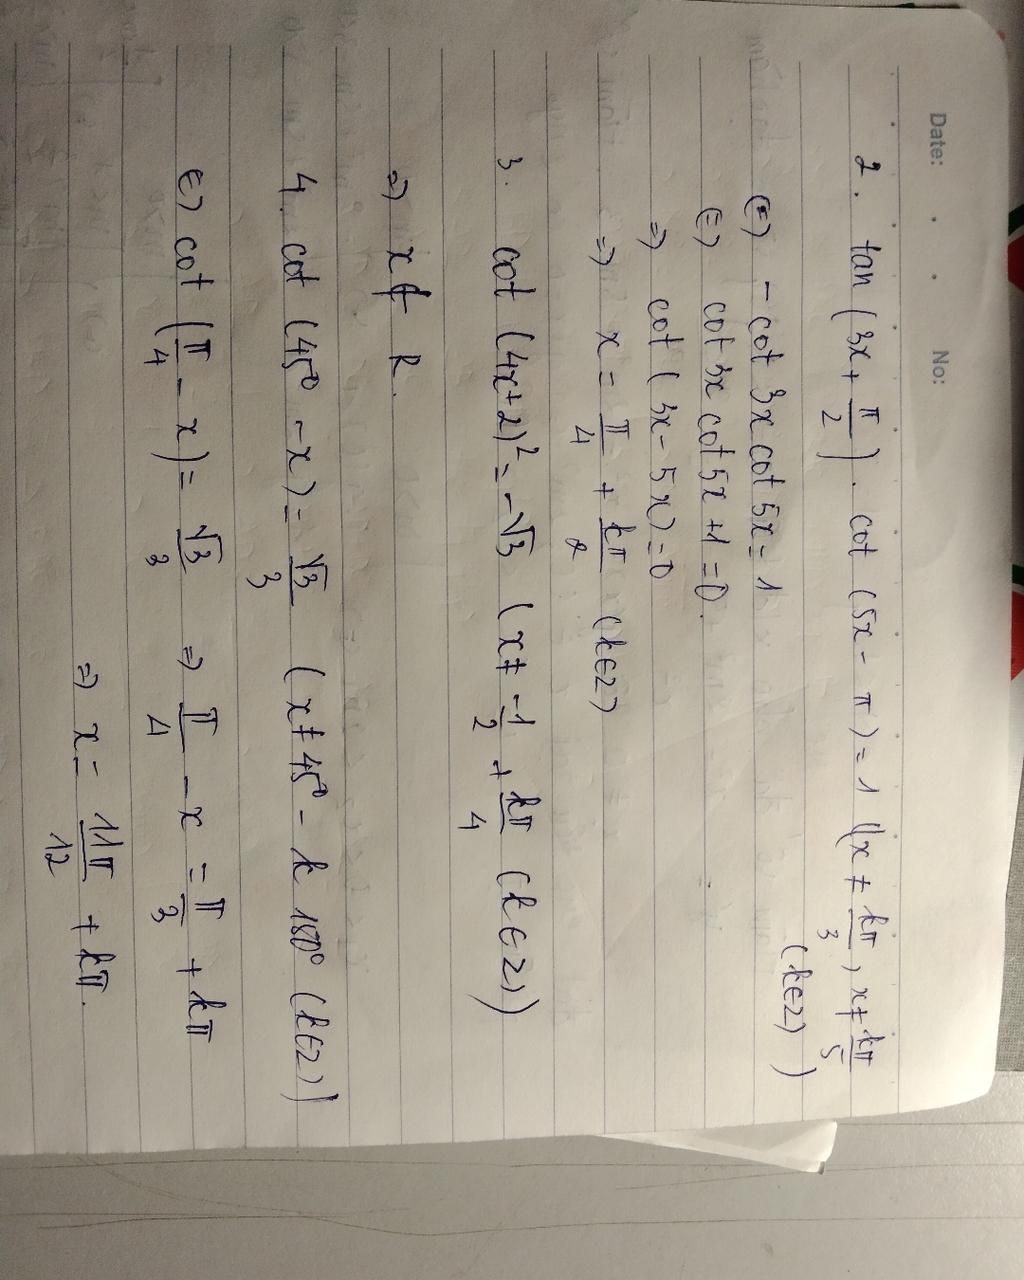 Date: No:
2. tan (3x + π/2) . cot (5x - π) = 1 (x ≠ kπ/3, x ≠ kπ/5
(k∈Z))
(=) - cot 3x cot 5x = 1
(=) cot 3x cot 5x + 1 = 0.
=) cot (3x - 5x) = 0
=) x = π/4 + kπ/2 (k∈Z)
3. cot (4x+2)² = -√3 (x ≠ -1/2 + kπ/4 (k∈Z))
=) x ∉ R.
4. cot (45° - x) = √3/3 (x ≠ 45° - k 180° (k∈Z))
(=) cot (π/4 - x) = √3/3 =) π/4 - x = π/3 + kπ
=) x = 11π/12 + kπ.